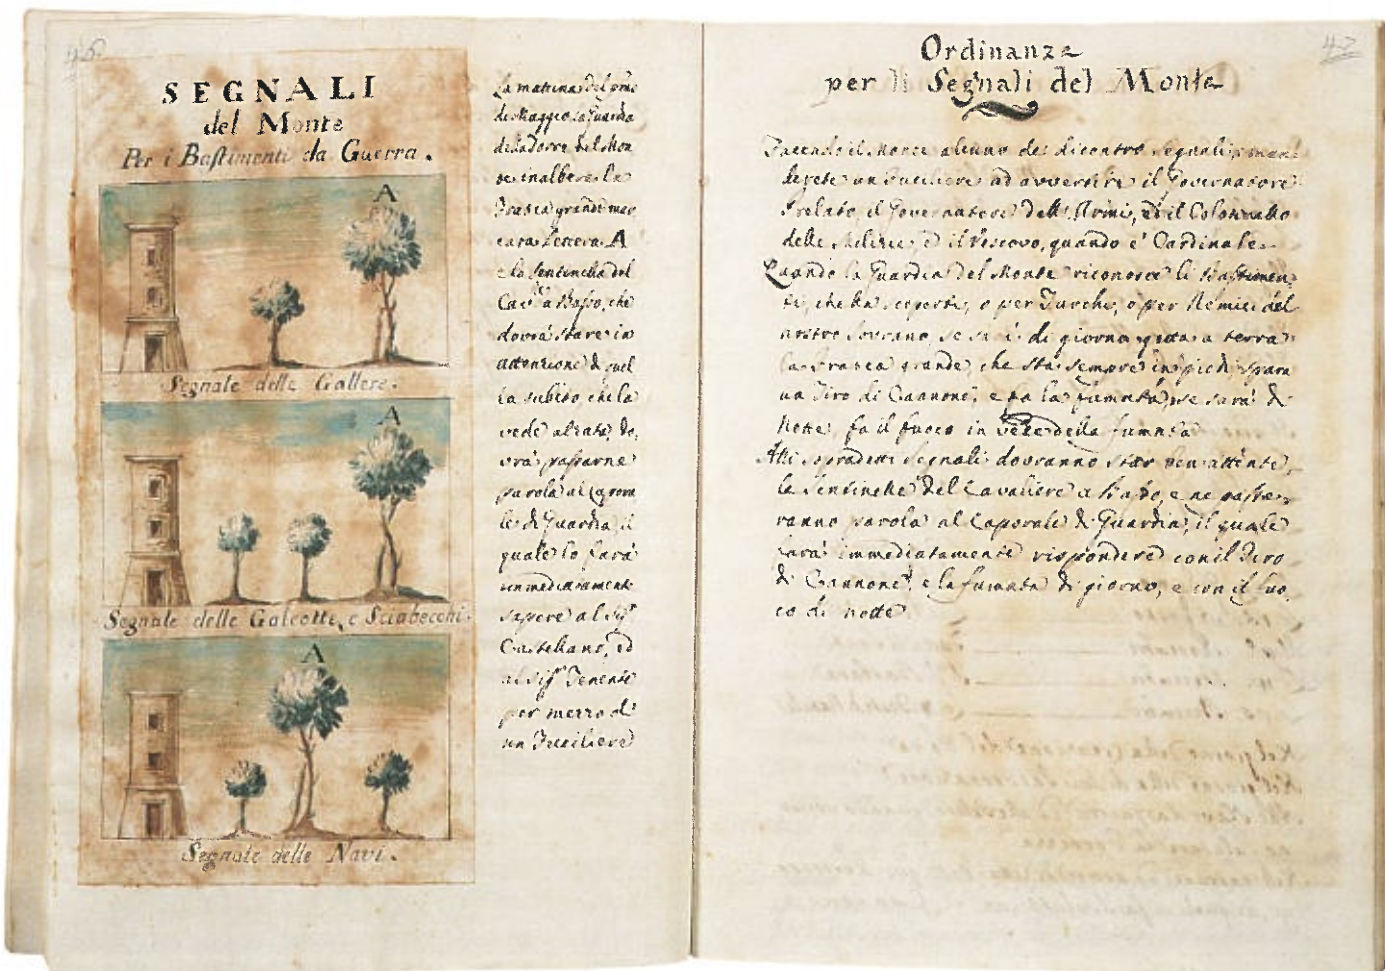 46.
SEGNALI
del Monte
Per i Bastimenti da Guerra.
A
Segnale delle Gallere.
A
Segnale delle Galeotte, e Sciabecchi.
A
Segnale delle Navi.
La mattina del
di Maggio la Guardia
della Torre del Mon
te inalbera la
Frasca grande mar
cata Lettera A
e la Sentinella del
Cav.re a Basso, che
dovrà stare in
attenzione di quel
la subito, che la
vede alzata, do,
vrà passarne
parola al Capora
le di Guardia, il
quale lo farà
immediatamente
sapere al Sig.r
Castellano, ed
al Sig.r Tenente
per mezzo di
un Fuciliere
47
Ordinanze
per li Segnali del Monte
Facendo il Monte alcuno de' dicontro Segnali, man
derete un Fuciliere ad avvertire il Governatore
Prelato, il Governatore dell'Armi, ed il Colonnello
delle Milizie, ed il Vescovo, quando è Cardinale.
Quando la Guardia del Monte riconosce li Bastimen,
ti, che ha scoperti, o per Turchi, o per Nemici del
nostro Sovrano, se sarà di giorno getta a terra
la Frasca grande, che sta sempre in piedi, spara
un Tiro di Cannone, e fa la fumata, se sarà di
notte, fa il fuoco in vece della fumata
Alli sopradetti Segnali dovranno star ben attente,
le Sentinelle del Cavaliere a Basso, e ne passe,
ranno parola al Caporale di Guardia, il quale
farà immediatamente rispondere con il Tiro
di Cannone, e la fumata di giorno, e con il fuo,
co di notte